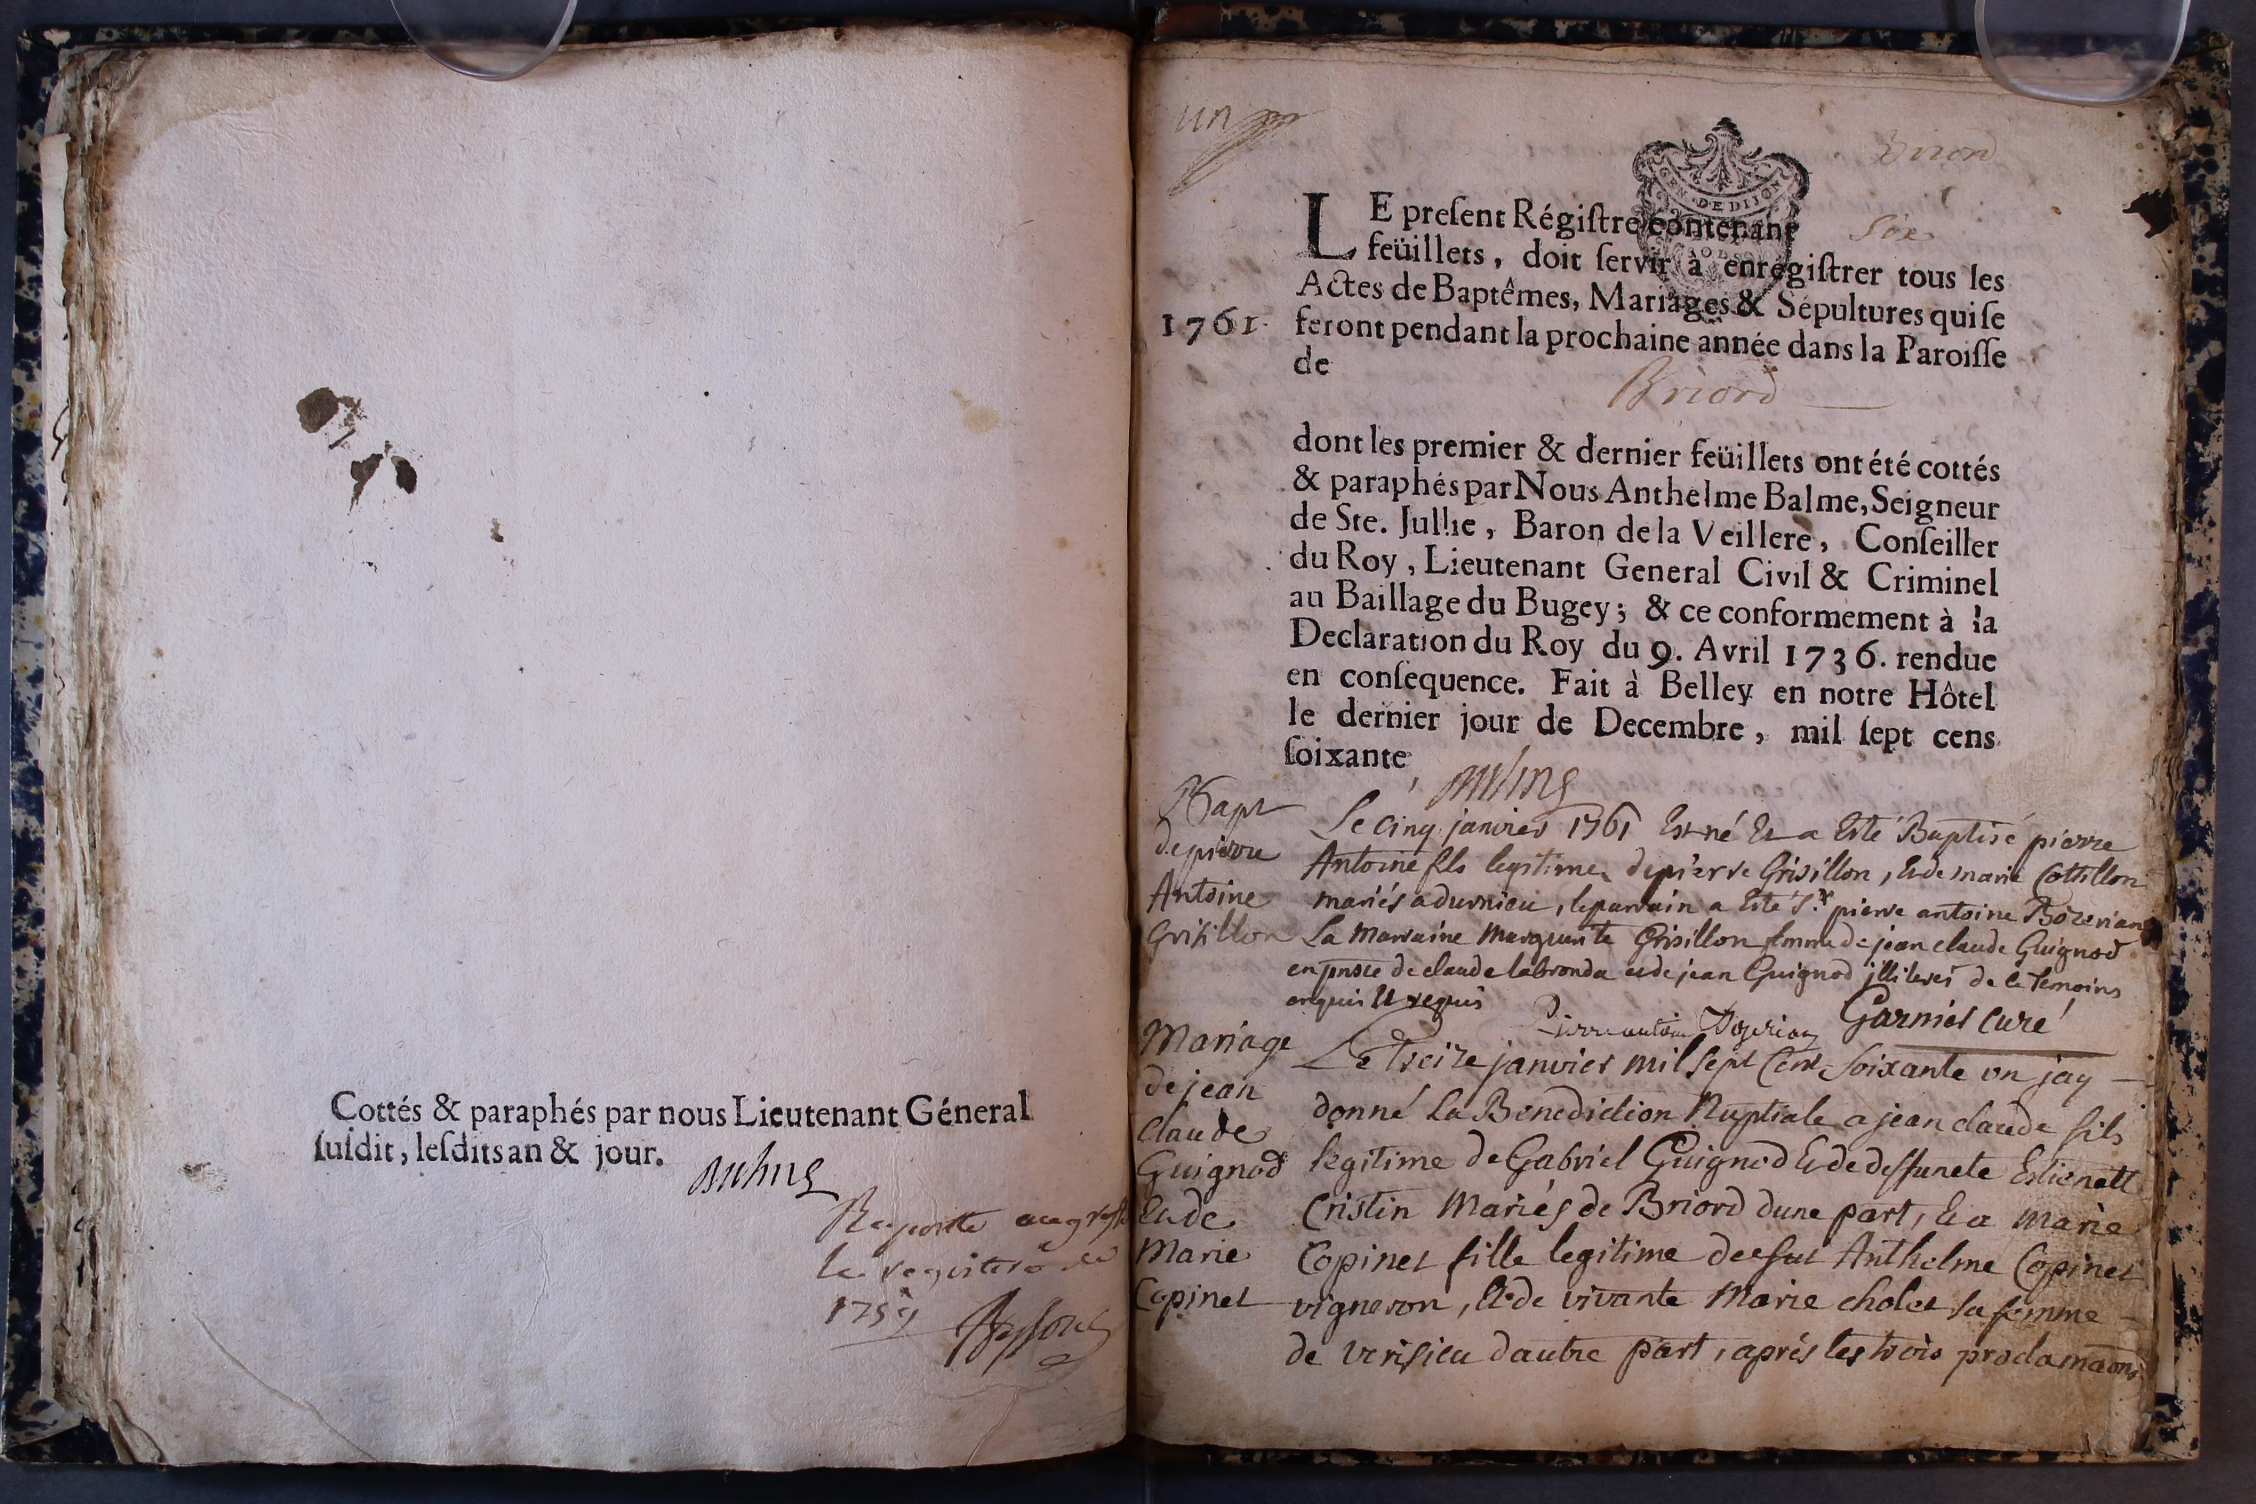 Cottés & paraphés par nous Lieutenant Géneral
suſdit, leſdits an & jour.
Raporté au greffe
le registre de
1759
un
Briord
GEN. DE DIJON
LE preſent Régiſtre contenant six
feüillets, doit ſervir à enregiſtrer tous les
Actes de Baptêmes, Mariages & Sépultures qui ſe
1761. feront pendant la prochaine année dans la Paroiſſe
de
Briord
dont les premier & dernier feüillets ont été cottés
& paraphés par Nous Anthelme Balme, Seigneur
de Ste. Jullie, Baron de la Veillere, Conſeiller
du Roy, Lieutenant General Civil & Criminel
au Baillage du Bugey; & ce conformement à la
Declaration du Roy du 9. Avril 1736. rendue
en conſequence. Fait à Belley en notre Hôtel
le dernier jour de Decembre, mil ſept cens
ſoixante
Bapt
de pierre
Antoine
Grisillon
Le cinq janvier 1761 Est né Et a Esté Baptisé pierre
Antoine fils legitime de pierre Grisillon, et de marie Cottillon
mariés a durnieu, le parrain a Esté Sr. pierre antoine Bozerian
La Marraine Marguerite Grisillon femme de jean claude Guignod
en pnce de claude labronda et de jean Guignod illiterés de ce Temoins
enquis Et requis
Pierre antoine Bozerian Garnier curé
Mariage
de jean
Claude
Guignod
Et de
Marie
Copinet
Le treize janvier mil sept Cent Soixante un jay
donné La Benediction Nuptiale a jean claude fils
legitime de Gabriel Guignod Et de deffuncte Estienette
Cristin Mariés de Briord dune part, Et a Marie
Copinet fille legitime de Anthelme Copinet
vigneron, Et de vivante Marie cholet sa femme
de verisieu dautre part, aprés les trois proclamaons